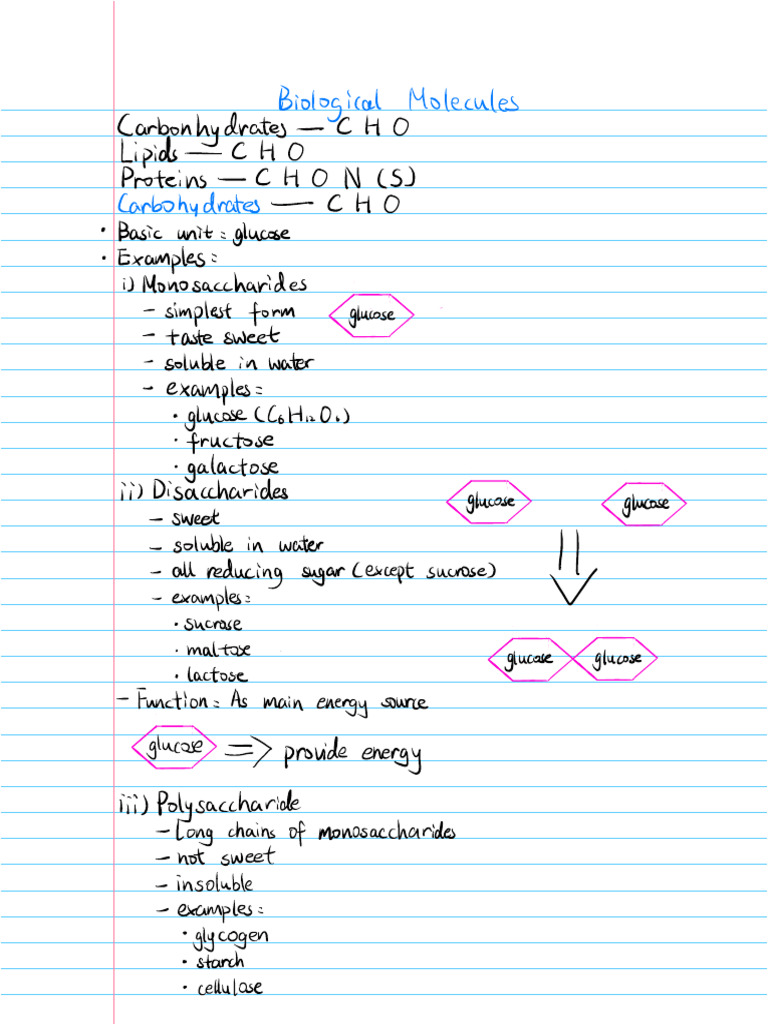 Biological Molecules
Carbonhydrates — C H O
Lipids — C H O
Proteins — C H O N (S)
Carbohydrates — C H O
· Basic unit: glucose
· Examples:
i) Monosaccharides
- simplest form
glucose
- taste sweet
- soluble in water
- examples:
· glucose (C₆H₁₂O₆)
· fructose
· galactose
ii) Disaccharides
glucose glucose
- sweet
- soluble in water
- all reducing sugar (except sucrose)
- examples:
· sucrose
· maltose
· lactose
glucose glucose
- Function: As main energy source
glucose ⇒ provide energy
iii) Polysaccharide
- Long chains of monosaccharides
- not sweet
- insoluble
- examples:
· glycogen
· starch
· cellulose